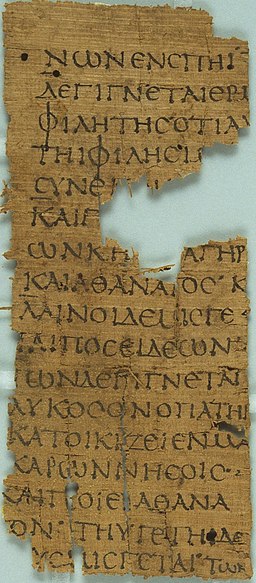 ΝΩΝ ΕΝ ΣΠΗΙ
ΔΕ ΓΙΓΝΕΤΑΙ ΕΡΜ
ΦΙΛΗΤΗΣ ΟΤΙ ΑΥ
ΤΗΙ ΦΙΛΗΣΙ
ΣΥΝΕ
ΚΑΙ
ΩΝ ΚΗ ΑΓΗΡ
ΚΑΙ ΑΘΑΝΑΤΟΣ Κ
ΛΑΙΝΟΙ ΔΕ ΜΙΣΓΕ
ΤΑΙ ΠΟΣΕΙΔΕΩΝ
ΤΩΝ ΔΕ ΓΙΓΝΕΤΑΙ
ΛΥΚΟΣ ΟΝ Ο ΠΑΤΗΡ
ΚΑΤΟΙΚΙΖΕΙ ΕΝ ΜΑ
ΚΑΡΩΝ ΝΗΣΟΙΣ
ΚΑΙ ΠΟΙΕΙ ΑΘΑΝΑ
ΤΟΝ ΤΗΥΓΕΤΗΙ ΔΕ
ΖΕΥΣ ΜΙΣΓΕΤΑΙ ΤΩΝ